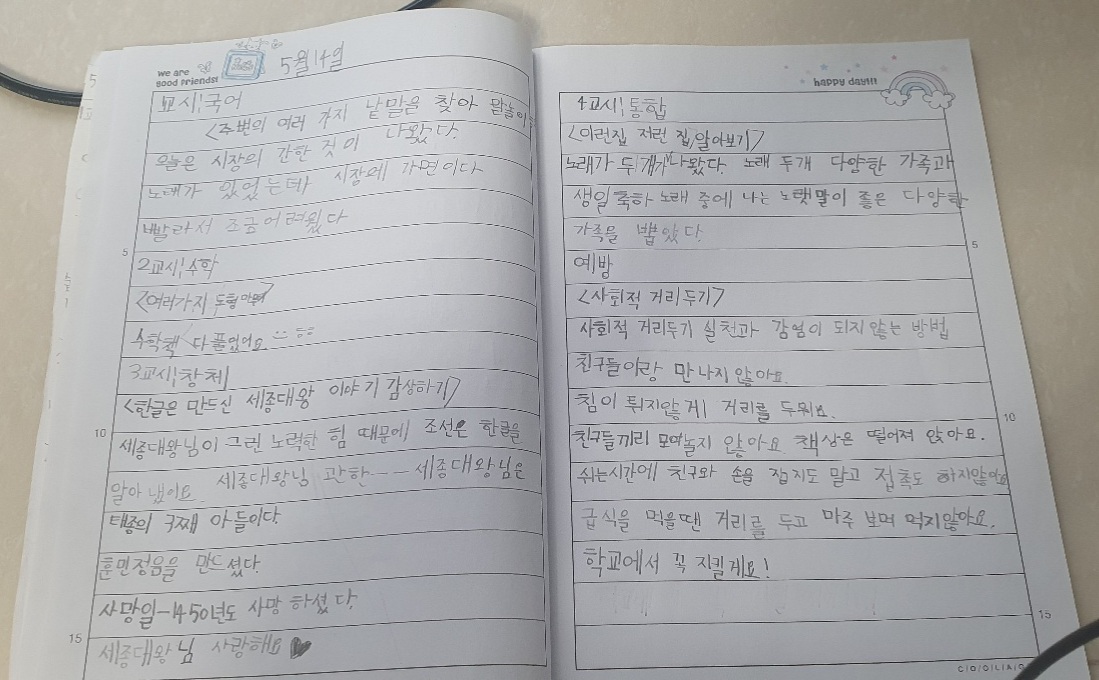 we are
good friends!
5월 14일
1교시|국어
<주변의 여러 가지 낱말을 찾아 말놀이
오늘은 시장의 간한 것이 나왔다.
노래가 있었는데 시장에 가면이다
빨라서 조금 어려웠다
5
2교시|수학
<여러가지 도형
수학책 다 풀었어요
3교시|창체
<한글은 만드신 세종대왕 이야기 감상하기>
10
세종대왕님이 그린 노력한 힘 때문에 조선은 한글을
알아 냈어요. 세종대왕님 관한---세종대왕님은
태종의 3째 아들이다.
훈민정음을 만드셨다.
사망일-1450년도 사망 하셨다.
15
세종대왕님 사랑해요 ♥
happy day!!!
4교시|통합
<이런집 저런 집 알아보기>
노래가 두 개가 나왔다. 노래 두개 다양한 가족과
생일 축하 노래 중에 나는 노랫말이 좋은 다양한
가족을 뽑았다.
5
예방
<사회적 거리두기>
사회적 거리두기 실천과 감염이 되지 않는 방법
친구들이랑 만나지 않아요.
침이 튀지않게 거리를 두워요.
10
친구들끼리 모여놀지 않아요 책상은 떨어져 앉아요.
쉬는시간에 친구와 손을 잡지도 말고 접촉도 하지않아요
급식을 먹을땐 거리를 두고 마주 보며 먹지않아요.
학교에서 꼭 지킬게요!
15